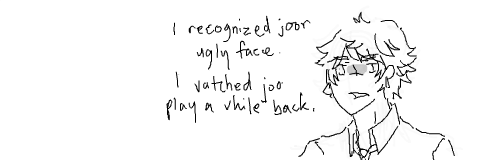 I recognized joor
ugly face.
I vatched joo
play a vhile back.